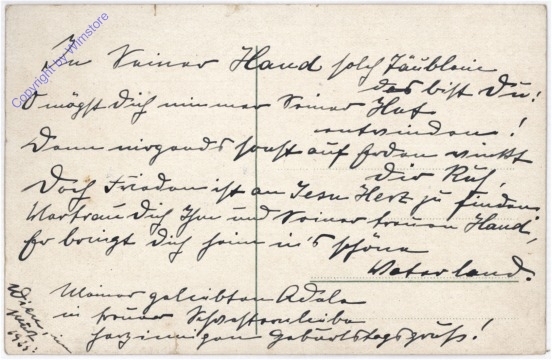 Copyright by Wimstore
In Seiner Hand solch Täublein
das bist Du!
O mögst Dich nimmer Seiner Hut
entwinden!
Denn nirgends sonst auf Erden winkt
Dir Ruh,
Doch Frieden ist an Jesu Herz zu finden,
Vertrau Dich Ihm und Seiner treuen Hand,
Er bringt Dich heim in's schöne
Vaterland.
Meiner geliebten Adele
in treuer Schwesternliebe
herzinnigen Geburtstagsgruß!
Wien, im